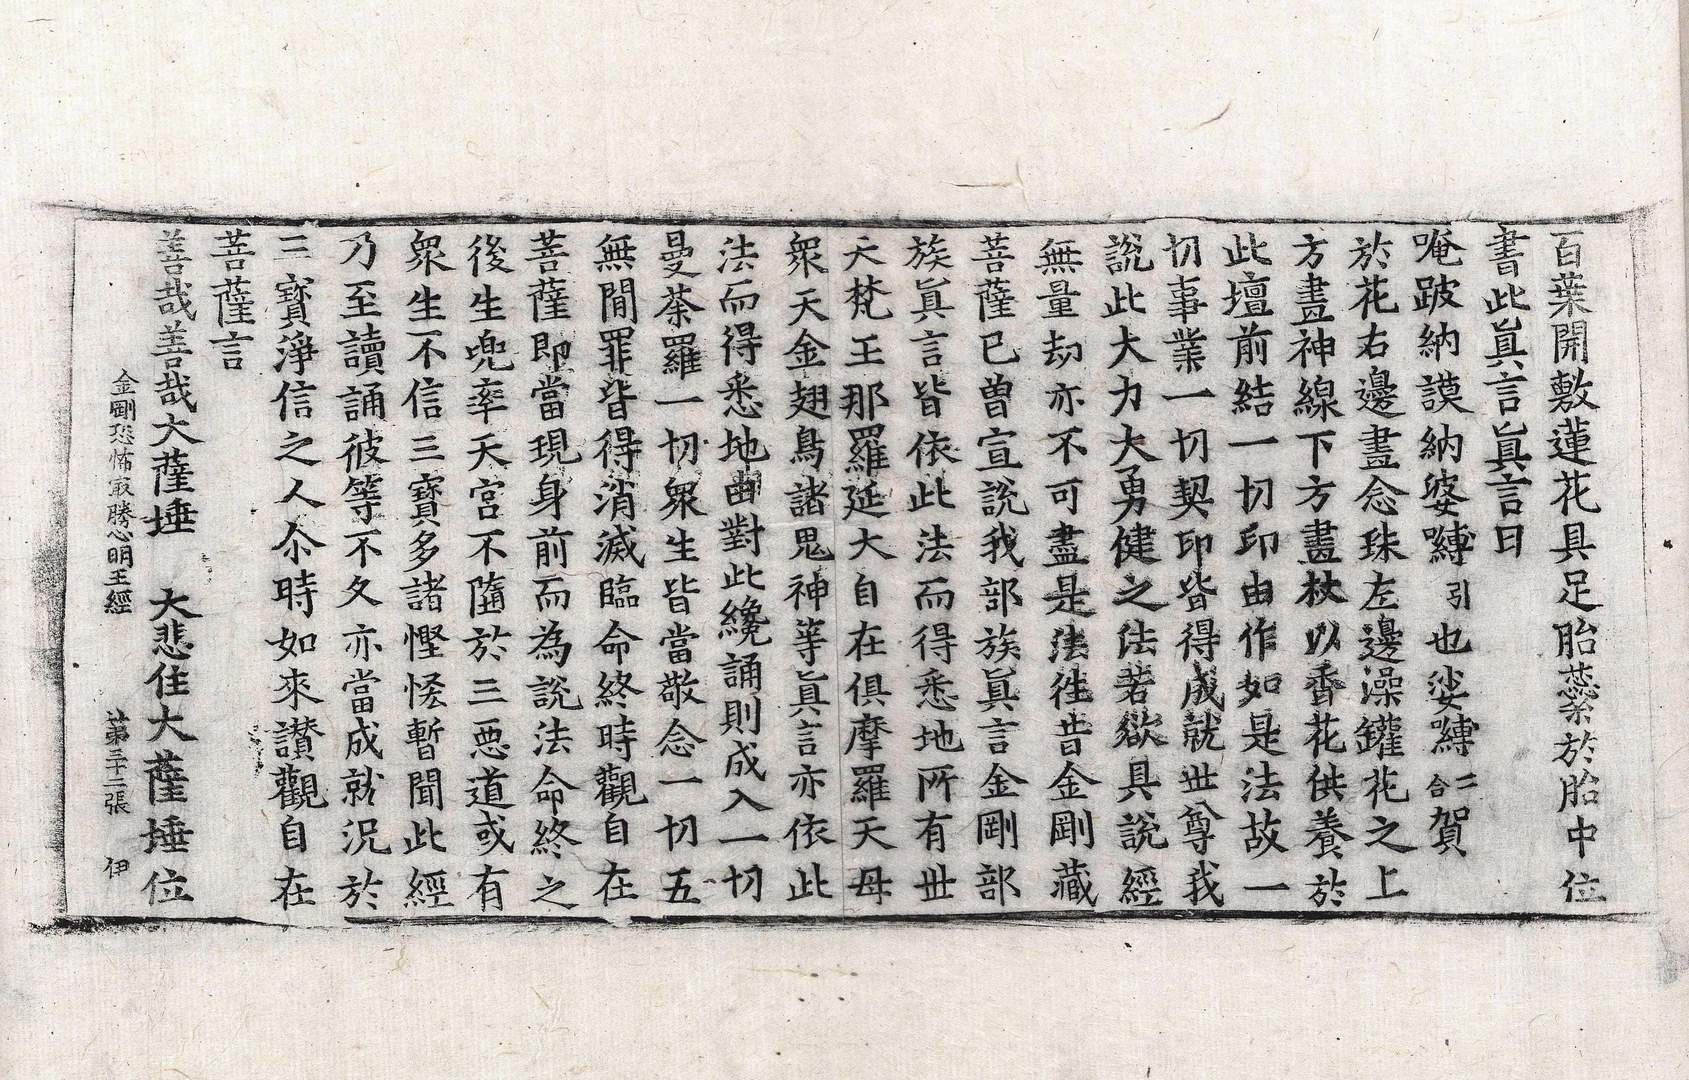 百葉開敷蓮花具足胎蘂於胎中位
書此眞言眞言曰
唵跛納謨納婆嚩引也娑嚩二合賀
於花右邊畫念珠左邊澡鑵花之上
方畫神線下方畫杖以香花供養於
此壇前結一切印由作如是法故一
切事業一切契印皆得成就世尊我
說此大力大勇健之法若欲具說經
無量劫亦不可盡是法往昔金剛藏
菩薩已曾宣說我部族眞言金剛部
族眞言皆依此法而得悉地所有世
天梵王那羅延大自在俱摩羅天母
衆天金翅鳥諸鬼神等眞言亦依此
法而得悉地由對此纔誦則成入一切
曼荼羅一切衆生皆當敬念一切五
無間罪皆得消滅臨命終時觀自在
菩薩即當現身前而為說法命終之
後生兜率天宮不隨於三惡道或有
衆生不信三寶多諸慳悋暫聞此經
乃至讀誦彼等不久亦當成就況於
三寶淨信之人尒時如來讃觀自在
菩薩言
善哉善哉大薩埵　大悲住大薩埵位
金剛恐怖㝡勝心明王經　第三十二張　伊